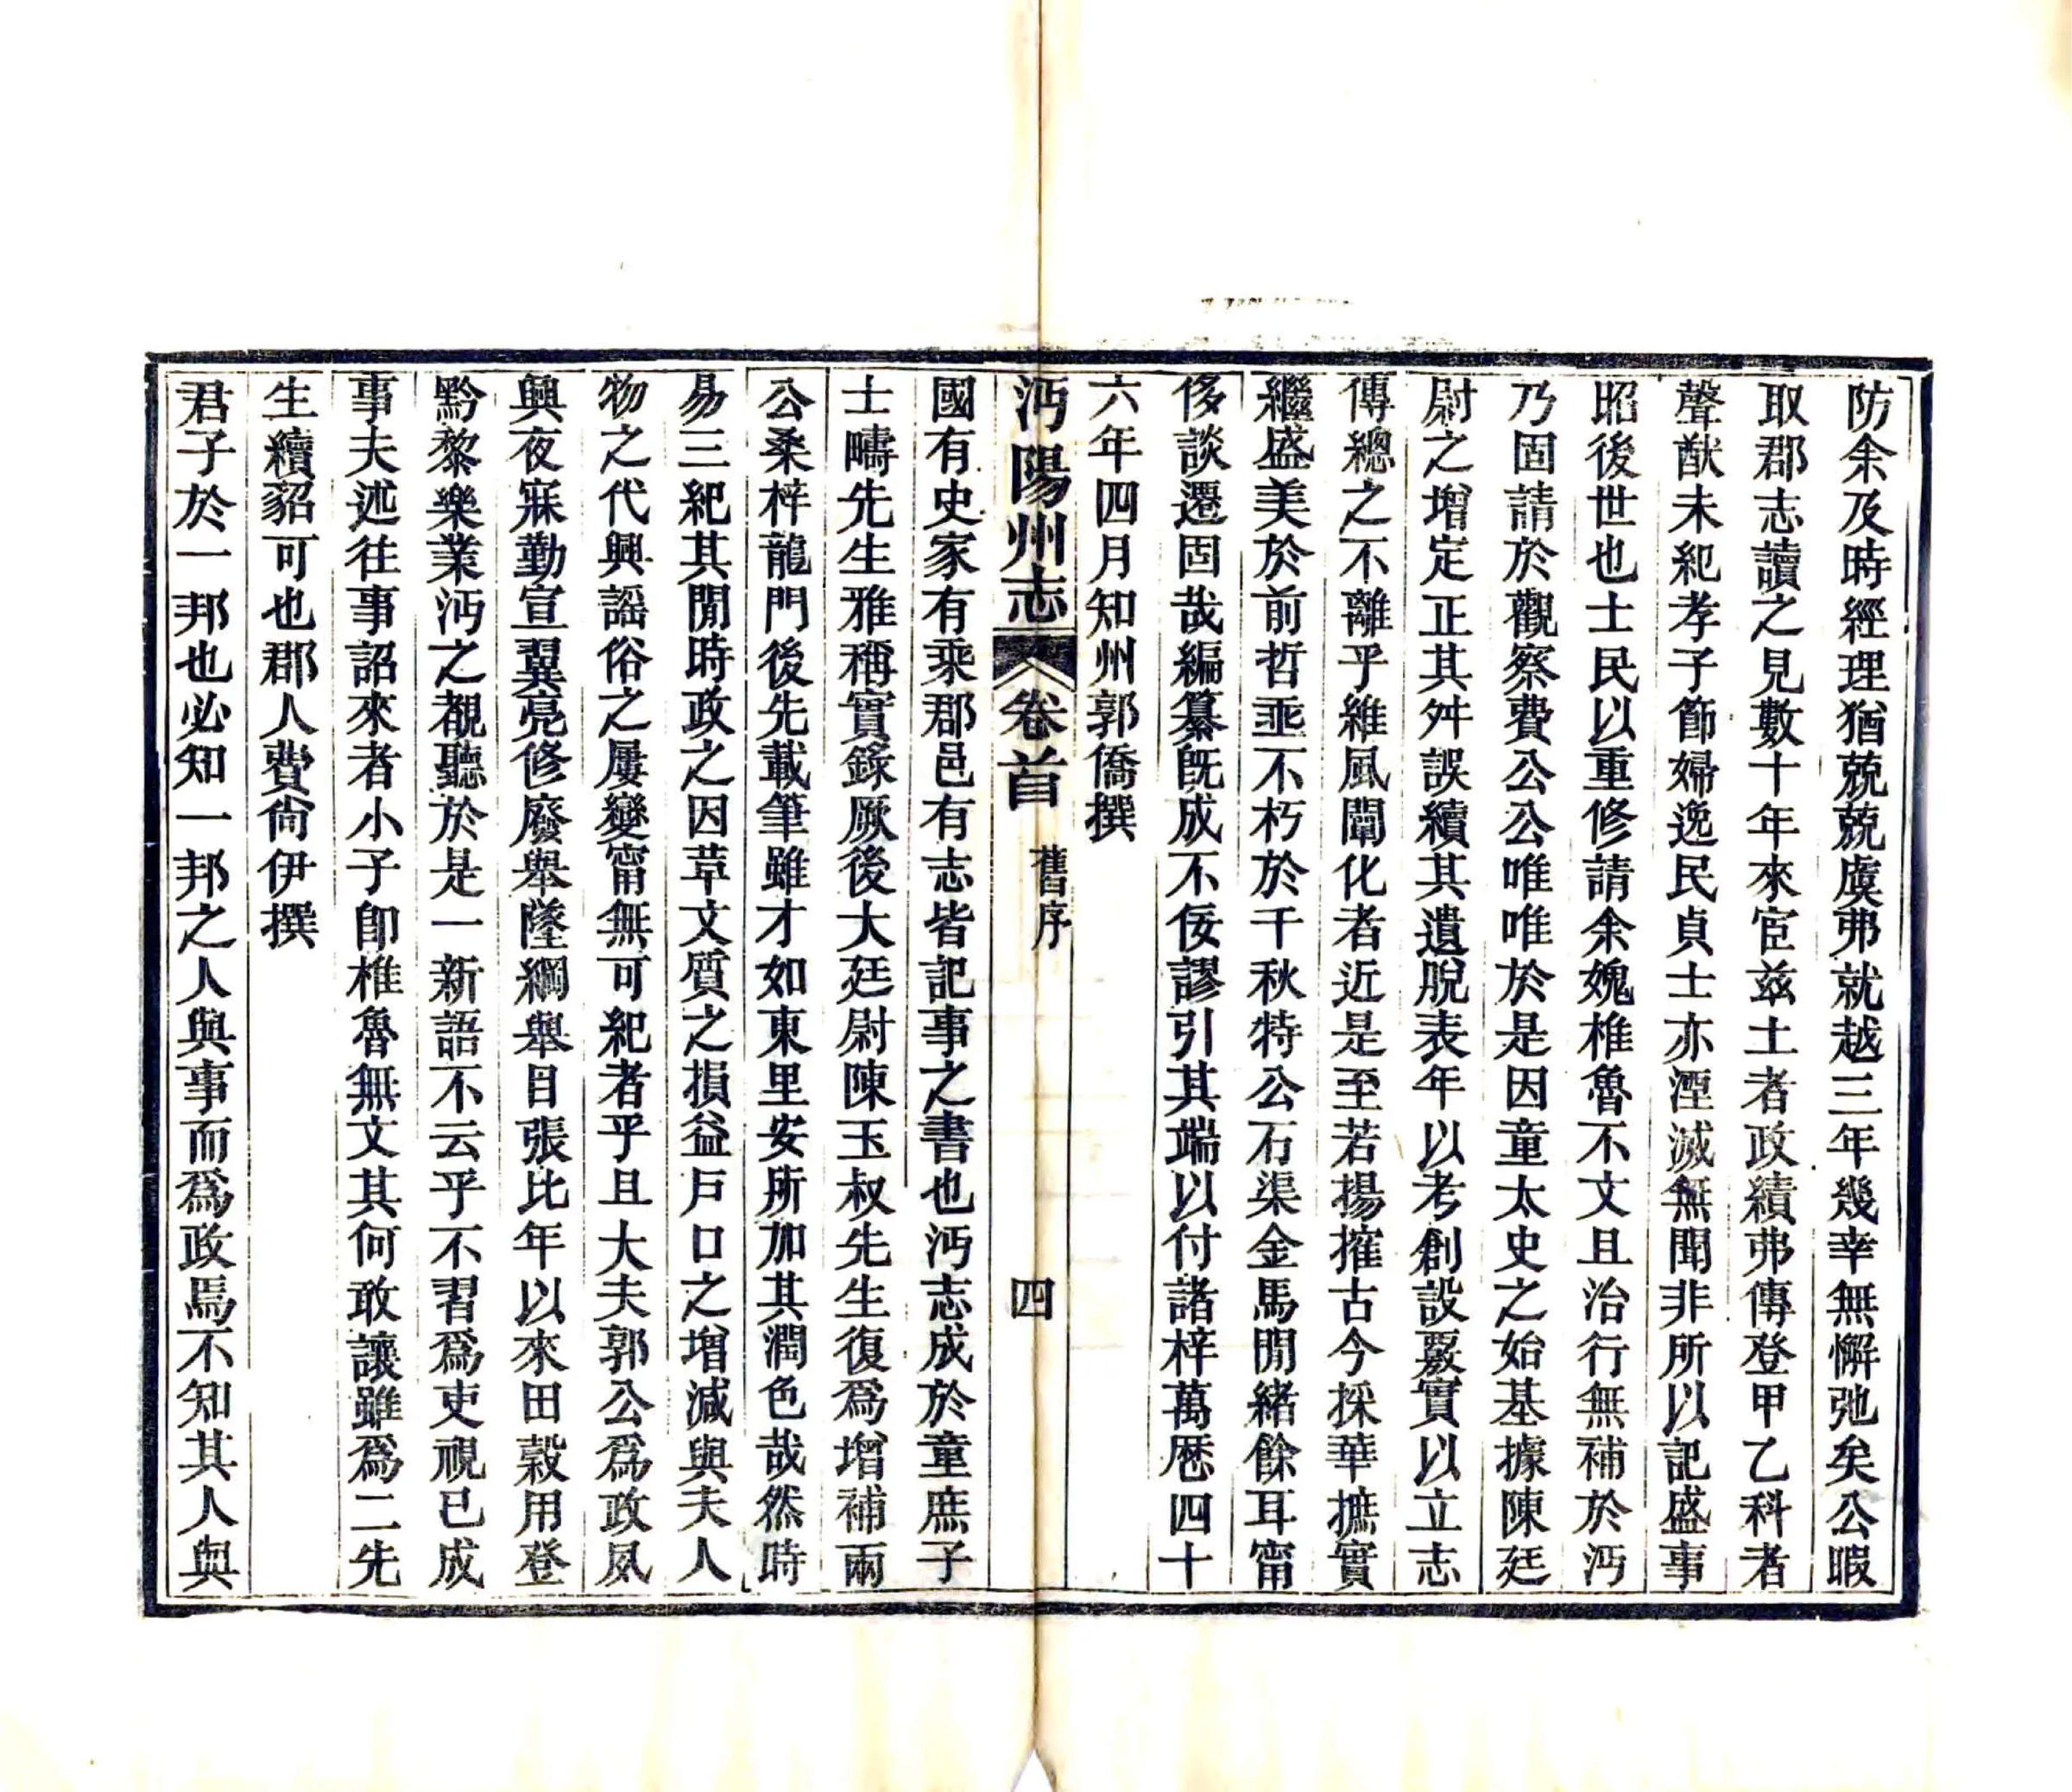 防余及時經理猶兢兢虞弗就越三年幾幸無懈弛矣公暇
取郡志讀之見數十年來宦茲土者政績弗傳登甲乙科者
聲猷未紀孝子節婦逸民貞士亦湮滅無聞非所以記盛事
昭後世也士民以重修請余媿椎魯不文且治行無補於沔
乃固請於觀察費公公唯唯於是因童太史之始基據陳廷
尉之增定正其舛誤續其遺脫表年以考創設覈實以立志
傳總之不離乎維風闡化者近是至若揚搉古今採華摭實
繼盛美於前哲亟不朽於千秋特公石渠金馬閒緒餘耳甯
侈談遷固哉編纂旣成不佞謬引其端以付諸梓萬厯四十
六年四月知州郭僑撰
沔陽州志 卷首 舊序 四
國有史家有乘郡邑有志皆記事之書也沔志成於童庶子
士疇先生雅稱實錄厥後大廷尉陳玉叔先生復爲增補兩
公桑梓龍門後先載筆雖才如東里安所加其潤色哉然時
易三紀其閒時政之因革文質之損益戶口之增減與夫人
物之代興謡俗之屢變甯無可紀者乎且大夫郭公爲政夙
興夜寐勤宣翼亮修廢舉墜綱舉目張比年以來田穀用登
黔黎樂業沔之覩聽於是一新語不云乎不習爲吏視已成
事夫述往事詔來者小子卽椎魯無文其何敢讓雖爲二先
生續貂可也郡人費尙伊撰
君子於一邦也必知一邦之人與事而爲政焉不知其人與